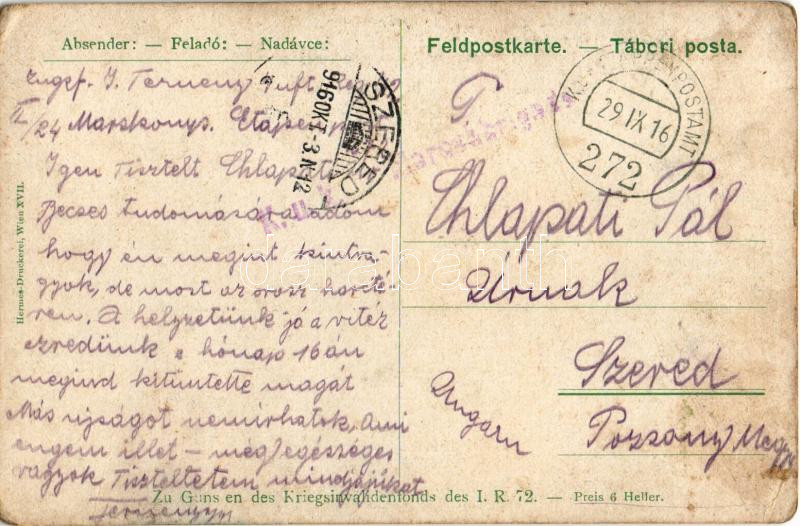 Absender: — Feladó: — Nadávce:
Feldpostkarte. — Tábori posta.
Zugsf. J. Terneny Inft. Reg.
II/24 Marskonp. Etapen
Igen Tisztelt Chlapati
Becses tudomására adom
hogy én megint kintva-
gyok, de most az orosz harcté-
ren. A helyzetünk jó a vitéz
ezredünk e hónap 16án
megind kitüntette magát
Más ujságot nemirhatok. Ami
engem illet – még egészséges
vagyok Tiszteltetem mindjájikat
SZERED
916 OKT -3. N 12
K. u. K. ETAPPENPOSTAMT
29 IX 16
272
K. u. k.
T.
Chlapati Pál
Úrnak
Szered
Pozsony Megye
Ungarn
Hermes-Druckerei, Wien XVII.
darabanth
Zu Gunsten des Kriegsinvalidenfonds des I. R. 72. — Preis 6 Heller.